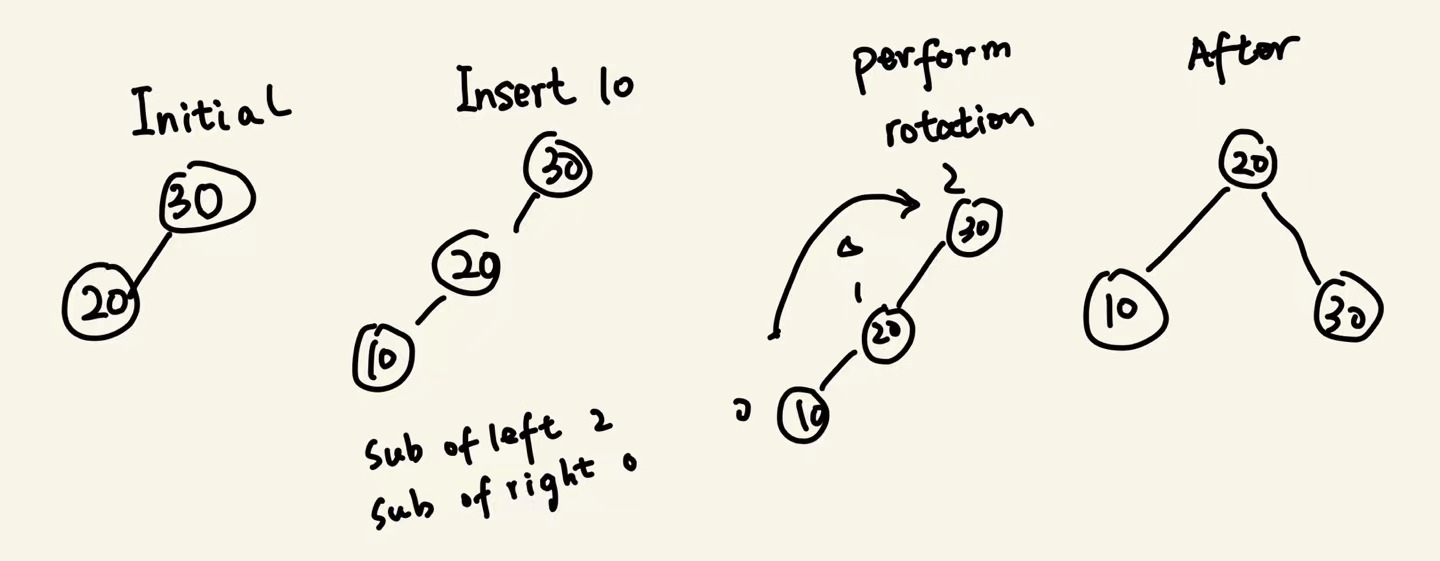 Initial
30
20
Insert 10
30
20
10
sub of left 2
sub of right 0
perform
rotation
2
30
1
20
0
10
After
20
10
30